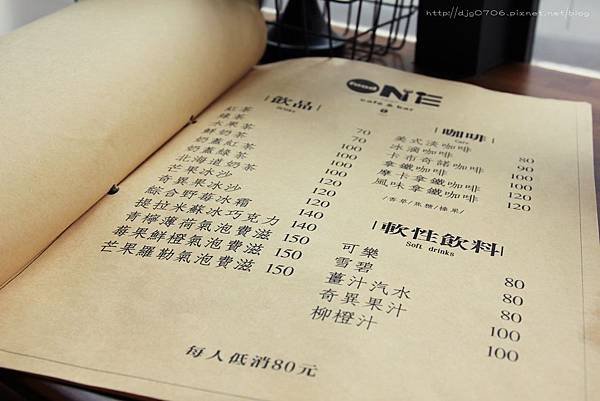 http://djg0706.pixnet.net/blog
food ONE
cafe & bar
飲品
Drinks
紅茶 70
綠茶 70
水果茶 100
鮮奶茶 100
奶蓋紅茶 100
奶蓋綠茶 100
北海道奶茶 120
芒果冰沙 120
奇異果冰沙 120
綜合野莓冰霜 120
提拉米蘇冰巧克力 140
青檸薄荷氣泡費滋 150
莓果鮮橙氣泡費滋 150
芒果羅勒氣泡費滋 150
咖啡
Cafe
美式淡咖啡 80
冰滴咖啡 90
卡布奇諾咖啡 100
拿鐵咖啡 100
摩卡拿鐵咖啡 120
風味拿鐵咖啡 120
/香草/焦糖/榛果/
軟性飲料
Soft drinks
可樂 80
雪碧 80
薑汁汽水 80
奇異果汁 100
柳橙汁 100
每人低消80元